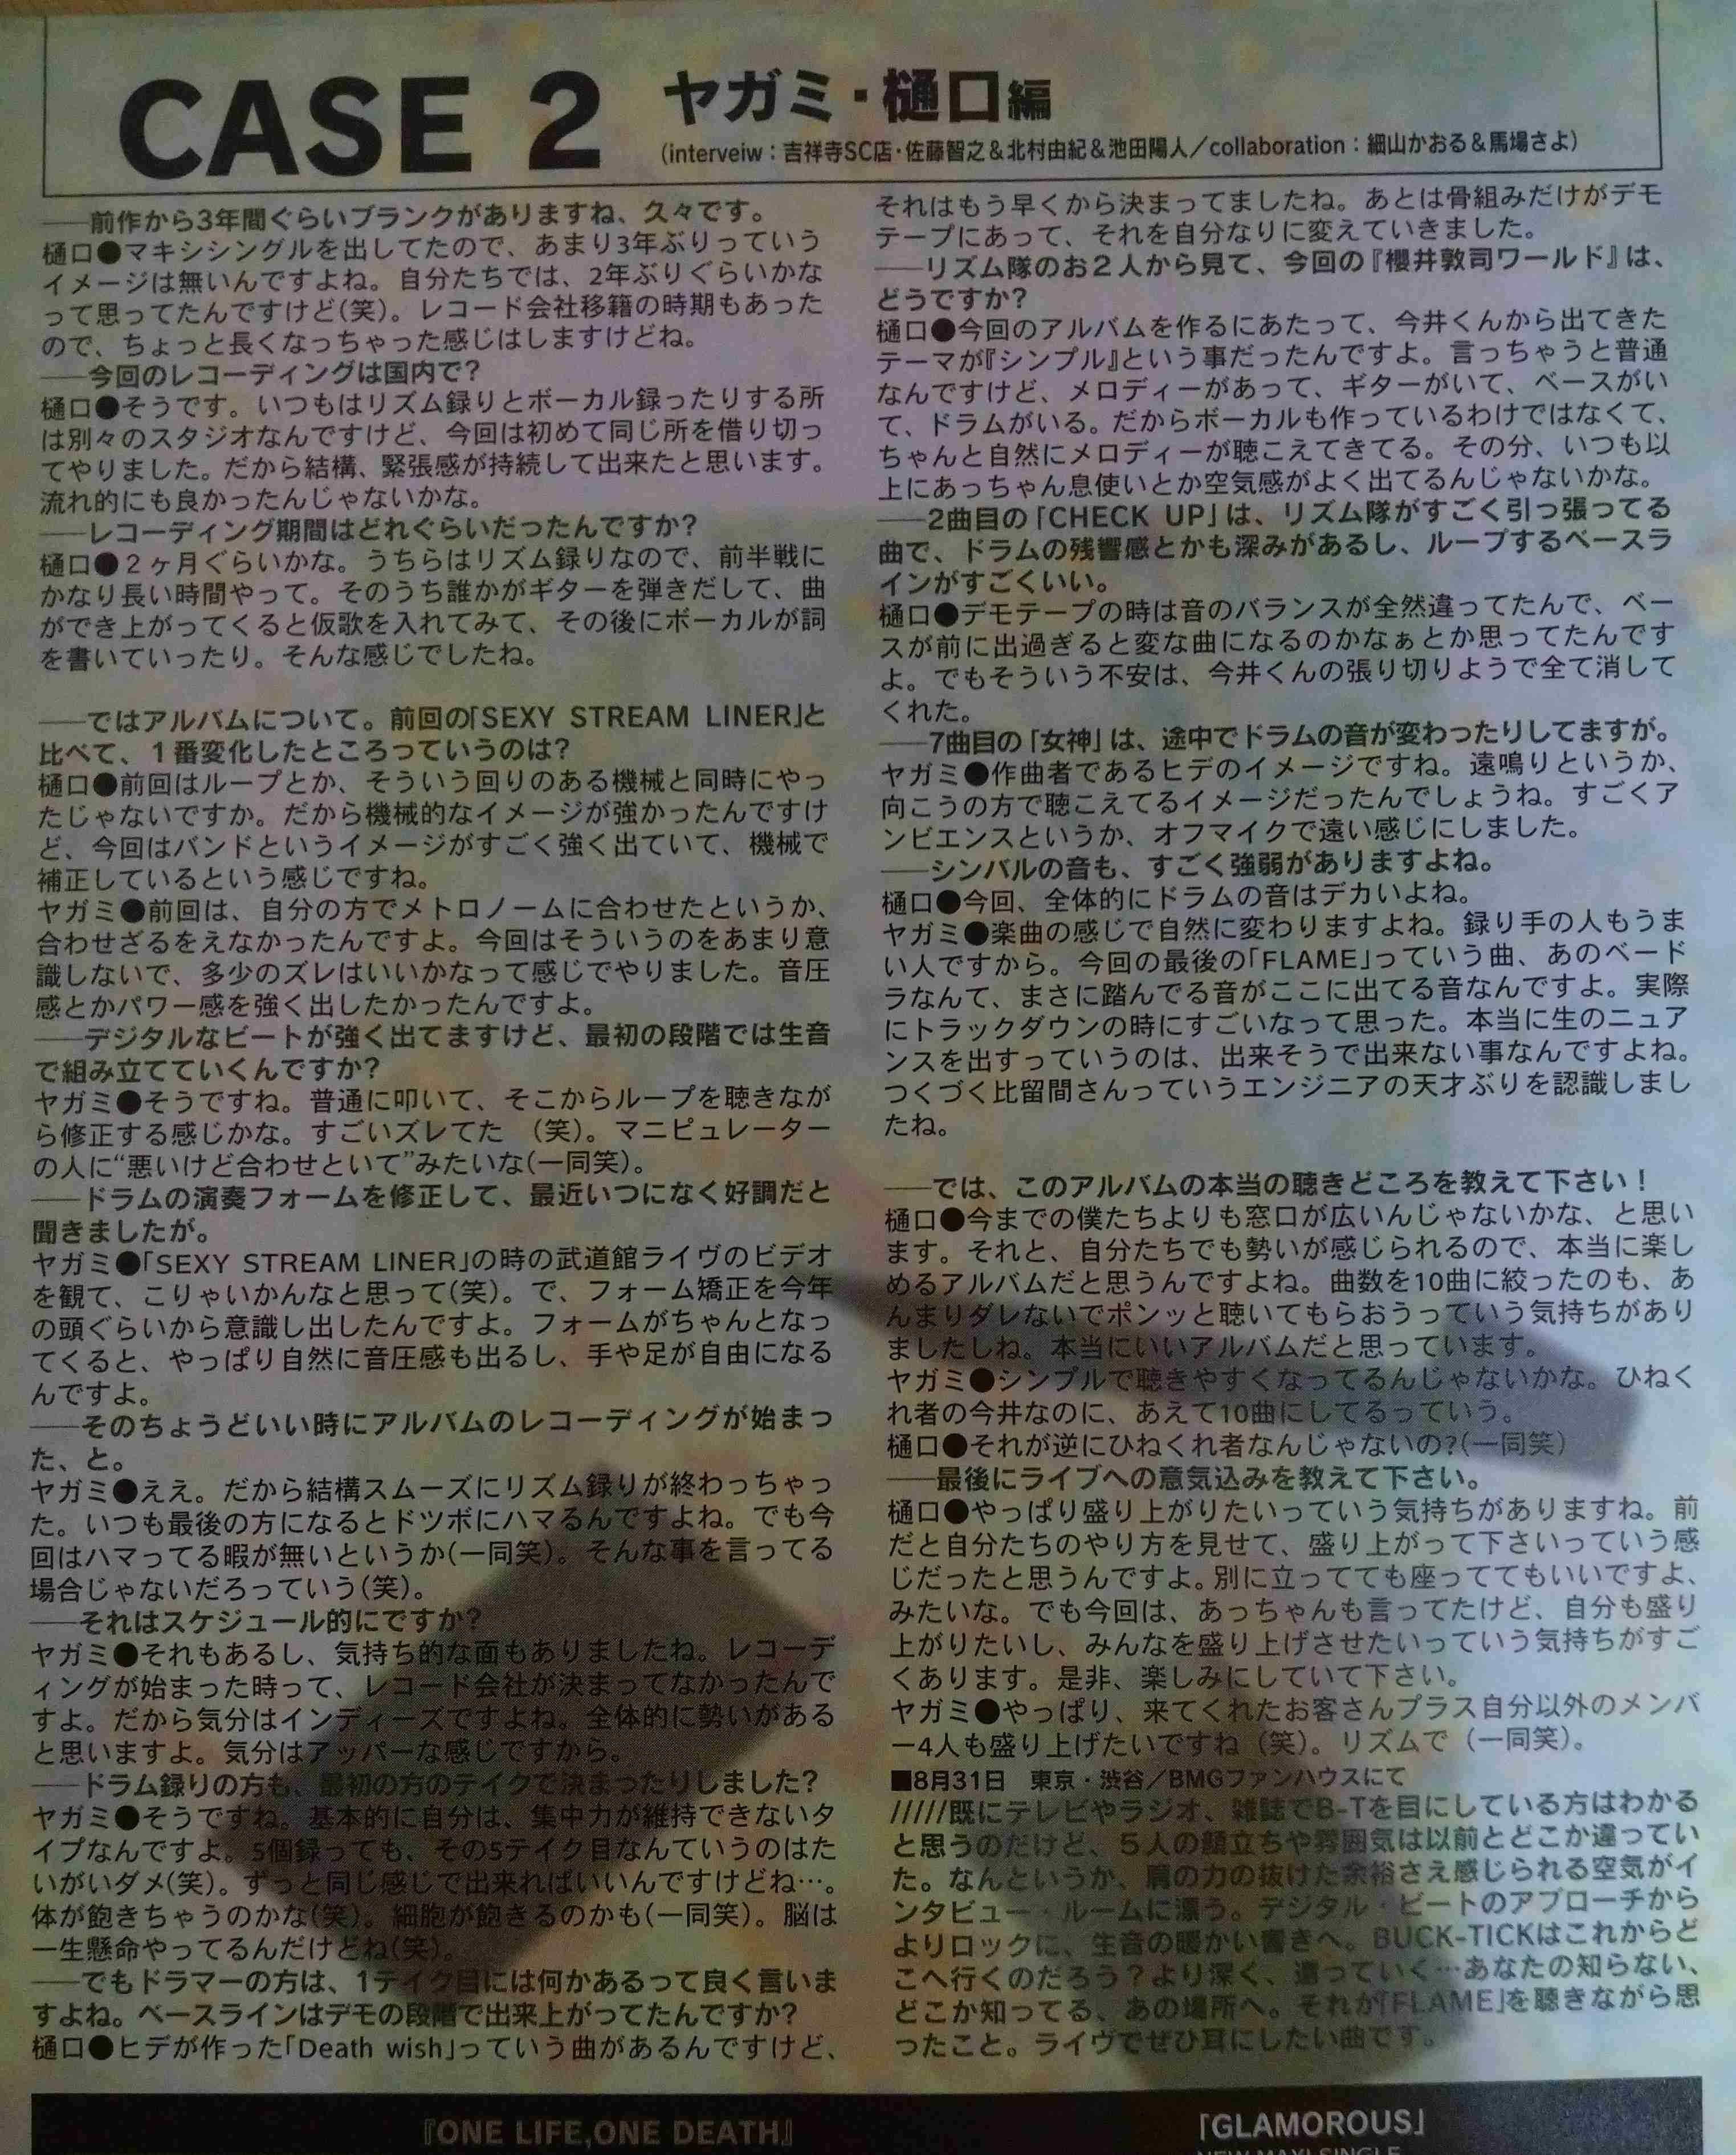 CASE 2 ヤガミ・樋口編
(interveiw：吉祥寺SC店・佐藤智之＆北村由紀＆池田陽人／collaboration：細山かおる＆馬場さよ)
──前作から3年間ぐらいブランクがありますね、久々です。
樋口●マキシシングルを出してたので、あまり3年ぶりっていう
イメージは無いんですよね。自分たちでは、2年ぶりぐらいかな
って思ってたんですけど(笑)。レコード会社移籍の時期もあった
ので、ちょっと長くなっちゃった感じはしますけどね。
──今回のレコーディングは国内で?
樋口●そうです。いつもはリズム録りとボーカル録ったりする所
は別々のスタジオなんですけど、今回は初めて同じ所を借り切っ
てやりました。だから結構、緊張感が持続して出来たと思います。
流れ的にも良かったんじゃないかな。
──レコーディング期間はどれぐらいだったんですか?
樋口●２ヶ月ぐらいかな。うちらはリズム録りなので、前半戦に
かなり長い時間やって。そのうち誰かがギターを弾きだして、曲
ができ上がってくると仮歌を入れてみて、その後にボーカルが詞
を書いていったり。そんな感じでしたね。
──ではアルバムについて。前回の｢SEXY STREAM LINER｣と
比べて、１番変化したところっていうのは?
樋口●前回はループとか、そういう回りのある機械と同時にやっ
たじゃないですか。だから機械的なイメージが強かったんですけ
ど、今回はバンドというイメージがすごく強く出ていて、機械で
補正しているという感じですね。
ヤガミ●前回は、自分の方でメトロノームに合わせたというか、
合わせざるをえなかったんですよ。今回はそういうのをあまり意
識しないで、多少のズレはいいかなって感じでやりました。音圧
感とかパワー感を強く出したかったんですよ。
──デジタルなビートが強く出てますけど、最初の段階では生音
で組み立てていくんですか?
ヤガミ●そうですね。普通に叩いて、そこからループを聴きなが
ら修正する感じかな。すごいズレてた （笑)。マニピュレーター
の人に“悪いけど合わせといて”みたいな(一同笑)。
──ドラムの演奏フォームを修正して、最近いつになく好調だと
聞きましたが。
ヤガミ●｢SEXY STREAM LINER｣の時の武道館ライヴのビデオ
を観て、こりゃいかんなと思って(笑)。で、フォーム矯正を今年
の頭ぐらいから意識し出したんですよ。フォームがちゃんとなっ
てくると、やっぱり自然に音圧感も出るし、手や足が自由になる
んですよ。
──そのちょうどいい時にアルバムのレコーディングが始まっ
た、と。
ヤガミ●ええ。だから結構スムーズにリズム録りが終わっちゃっ
た。いつも最後の方になるとドツボにハマるんですよね。でも今
回はハマってる暇が無いというか(一同笑)。そんな事を言ってる
場合じゃないだろっていう(笑)。
──それはスケジュール的にですか?
ヤガミ●それもあるし、気持ち的な面もありましたね。レコーデ
ィングが始まった時って、レコード会社が決まってなかったんで
すよ。だから気分はインディーズですよね。全体的に勢いがある
と思いますよ。気分はアッパーな感じですから。
──ドラム録りの方も、最初の方のテイクで決まったりしました?
ヤガミ●そうですね。基本的に自分は、集中力が維持できないタ
イプなんですよ。5個録っても、その5テイク目なんていうのはた
いがいダメ(笑)。ずっと同じ感じで出来ればいいんですけどね…。
体が飽きちゃうのかな(笑)。細胞が飽きるのかも(一同笑)。脳は
一生懸命やってるんだけどね(笑)。
──でもドラマーの方は、1テイク目には何かあるって良く言いま
すよね。ベースラインはデモの段階で出来上がってたんですか?
樋口●ヒデが作った｢Death wish｣っていう曲があるんですけど、
それはもう早くから決まってましたね。あとは骨組みだけがデモ
テープにあって、それを自分なりに変えていきました。
──リズム隊のお２人から見て、今回の『櫻井敦司ワールド』は、
どうですか?
樋口●今回のアルバムを作るにあたって、今井くんから出てきた
テーマが『シンプル』という事だったんですよ。言っちゃうと普通
なんですけど、メロディーがあって、ギターがいて、ベースがい
て、ドラムがいる。だからボーカルも作っているわけではなくて、
ちゃんと自然にメロディーが聴こえてきてる。その分、いつも以
上にあっちゃん息使いとか空気感がよく出てるんじゃないかな。
──2曲目の｢CHECK UP｣は、リズム隊がすごく引っ張ってる
曲で、ドラムの残響感とかも深みがあるし、ループするベースラ
インがすごくいい。
樋口●デモテープの時は音のバランスが全然違ってたんで、ベー
スが前に出過ぎると変な曲になるのかなぁとか思ってたんです
よ。でもそういう不安は、今井くんの張り切りようで全て消して
くれた。
──7曲目の｢女神｣は、途中でドラムの音が変わったりしてますが。
ヤガミ●作曲者であるヒデのイメージですね。遠鳴りというか、
向こうの方で聴こえてるイメージだったんでしょうね。すごくア
ンビエンスというか、オフマイクで遠い感じにしました。
──シンバルの音も、すごく強弱がありますよね。
樋口●今回、全体的にドラムの音はデカいよね。
ヤガミ●楽曲の感じで自然に変わりますよね。録り手の人もうま
い人ですから。今回の最後の｢FLAME｣っていう曲、あのベード
ラなんて、まさに踏んでる音がここに出てる音なんですよ。実際
にトラックダウンの時にすごいなって思った。本当に生のニュア
ンスを出すっていうのは、出来そうで出来ない事なんですよね。
つくづく比留間さんっていうエンジニアの天才ぶりを認識しまし
たね。
──では、このアルバムの本当の聴きどころを教えて下さい！
樋口●今までの僕たちよりも窓口が広いんじゃないかな、と思い
ます。それと、自分たちでも勢いが感じられるので、本当に楽し
めるアルバムだと思うんですよね。曲数を10曲に絞ったのも、あ
んまりダレないでポンッと聴いてもらおうっていう気持ちがあり
ましたしね。本当にいいアルバムだと思っています。
ヤガミ●シンプルで聴きやすくなってるんじゃないかな。ひねく
れ者の今井なのに、あえて10曲にしてるっていう。
樋口●それが逆にひねくれ者なんじゃないの?(一同笑)
──最後にライブへの意気込みを教えて下さい。
樋口●やっぱり盛り上がりたいっていう気持ちがありますね。前
だと自分たちのやり方を見せて、盛り上がって下さいっていう感
じだったと思うんですよ。別に立ってても座っててもいいですよ、
みたいな。でも今回は、あっちゃんも言ってたけど、自分も盛り
上がりたいし、みんなを盛り上げさせたいっていう気持ちがすご
くあります。是非、楽しみにしていて下さい。
ヤガミ●やっぱり、来てくれたお客さんプラス自分以外のメンバ
ー4人も盛り上げたいですね（笑)。リズムで（一同笑)。
■8月31日 東京・渋谷／BMGファンハウスにて
/////既にテレビやラジオ、雑誌でB-Tを目にしている方はわかる
と思うのだけど、５人の顔立ちや雰囲気は以前とどこか違ってい
た。なんというか、肩の力の抜けた余裕さえ感じられる空気がイ
ンタビュー・ルームに漂う。デジタル・ビートのアプローチから
よりロックに、生音の暖かい響きへ。BUCK-TICKはこれからど
こへ行くのだろう？より深く、潜っていく…あなたの知らない、
どこか知ってる、あの場所へ。それが｢FLAME｣を聴きながら思
ったこと。ライヴでぜひ耳にしたい曲です。
『ONE LIFE,ONE DEATH』
｢GLAMOROUS｣
NEW MAXI SINGLE